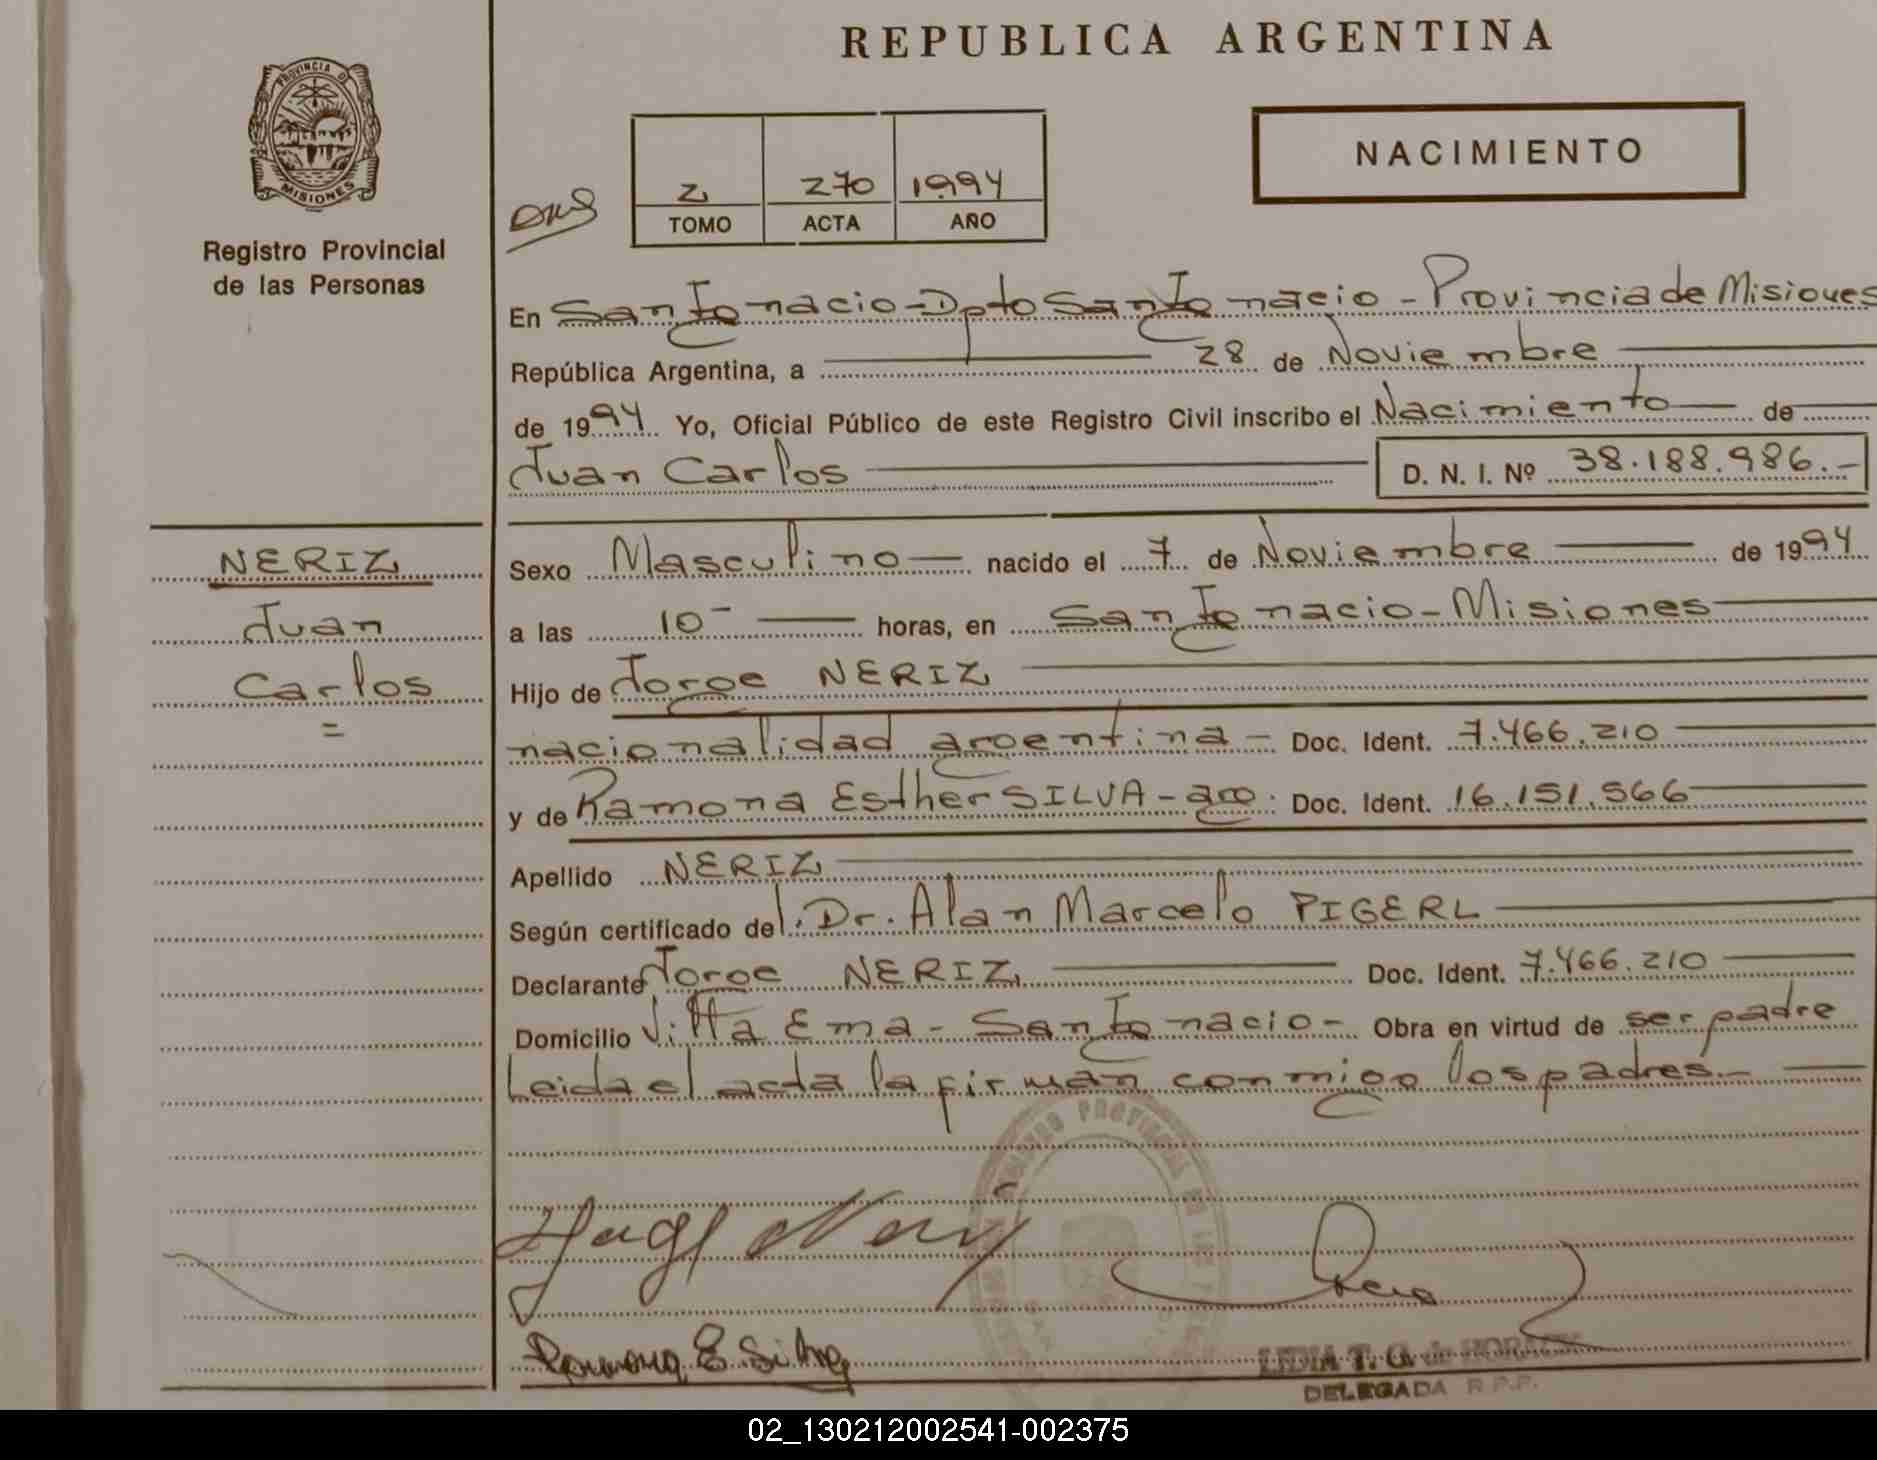 REPUBLICA ARGENTINA
PROVINCIA DE
MISIONES
Registro Provincial
de las Personas
NACIMIENTO
2 270 1994
TOMO ACTA AÑO
En San Ignacio - Dpto San Ignacio - Provincia de Misiones
República Argentina, a 28 de Noviembre
de 1994 Yo, Oficial Público de este Registro Civil inscribo el Nacimiento de
Juan Carlos D. N. I. Nº 38.188.986.-
NERIZ
Juan
Carlos
=
Sexo Masculino nacido el 7 de Noviembre de 1994
a las 10 horas, en San Ignacio - Misiones
Hijo de Jorge NERIZ
nacionalidad argentina - Doc. Ident. 7.466.210
y de Ramona Esther SILVA - arg. Doc. Ident. 16.151.566
Apellido NERIZ
Según certificado del. Dr. Alan Marcelo PIGERL
Declarante Jorge NERIZ Doc. Ident. 7.466.210
Domicilio Villa Ema - San Ignacio - Obra en virtud de ser padre
Leida el acta la firman conmigo los padres.-
Ramona E. Silva
LIDIA T. G. de
DELEGADA R.P.P.
02_130212002541-002375